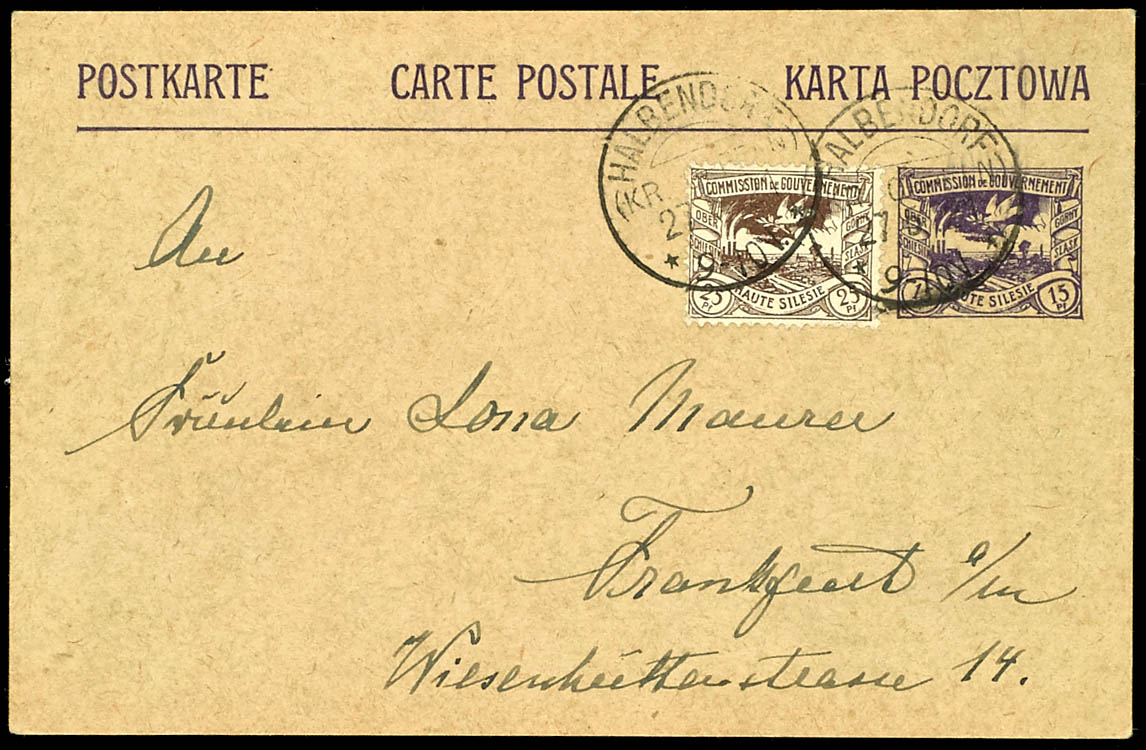 POSTKARTE CARTE POSTALE KARTA POCZTOWA
HALBENDORF
(KR.
27
* 9-10
HALBENDORF
27
* 9-10
COMMISSION DE GOUVERNEMENT
OBER GORNY
SCHLESIEN SLASK
25 PF HAUTE SILESIE 25 PF
COMMISSION DE GOUVERNEMENT
OBER GORNY
SCHLESIEN SLASK
HAUTE SILESIE 15 PF
An
Fräulein Lona Maurer
Frankfurt a/m
Wiesenhüttenstrasse 14.